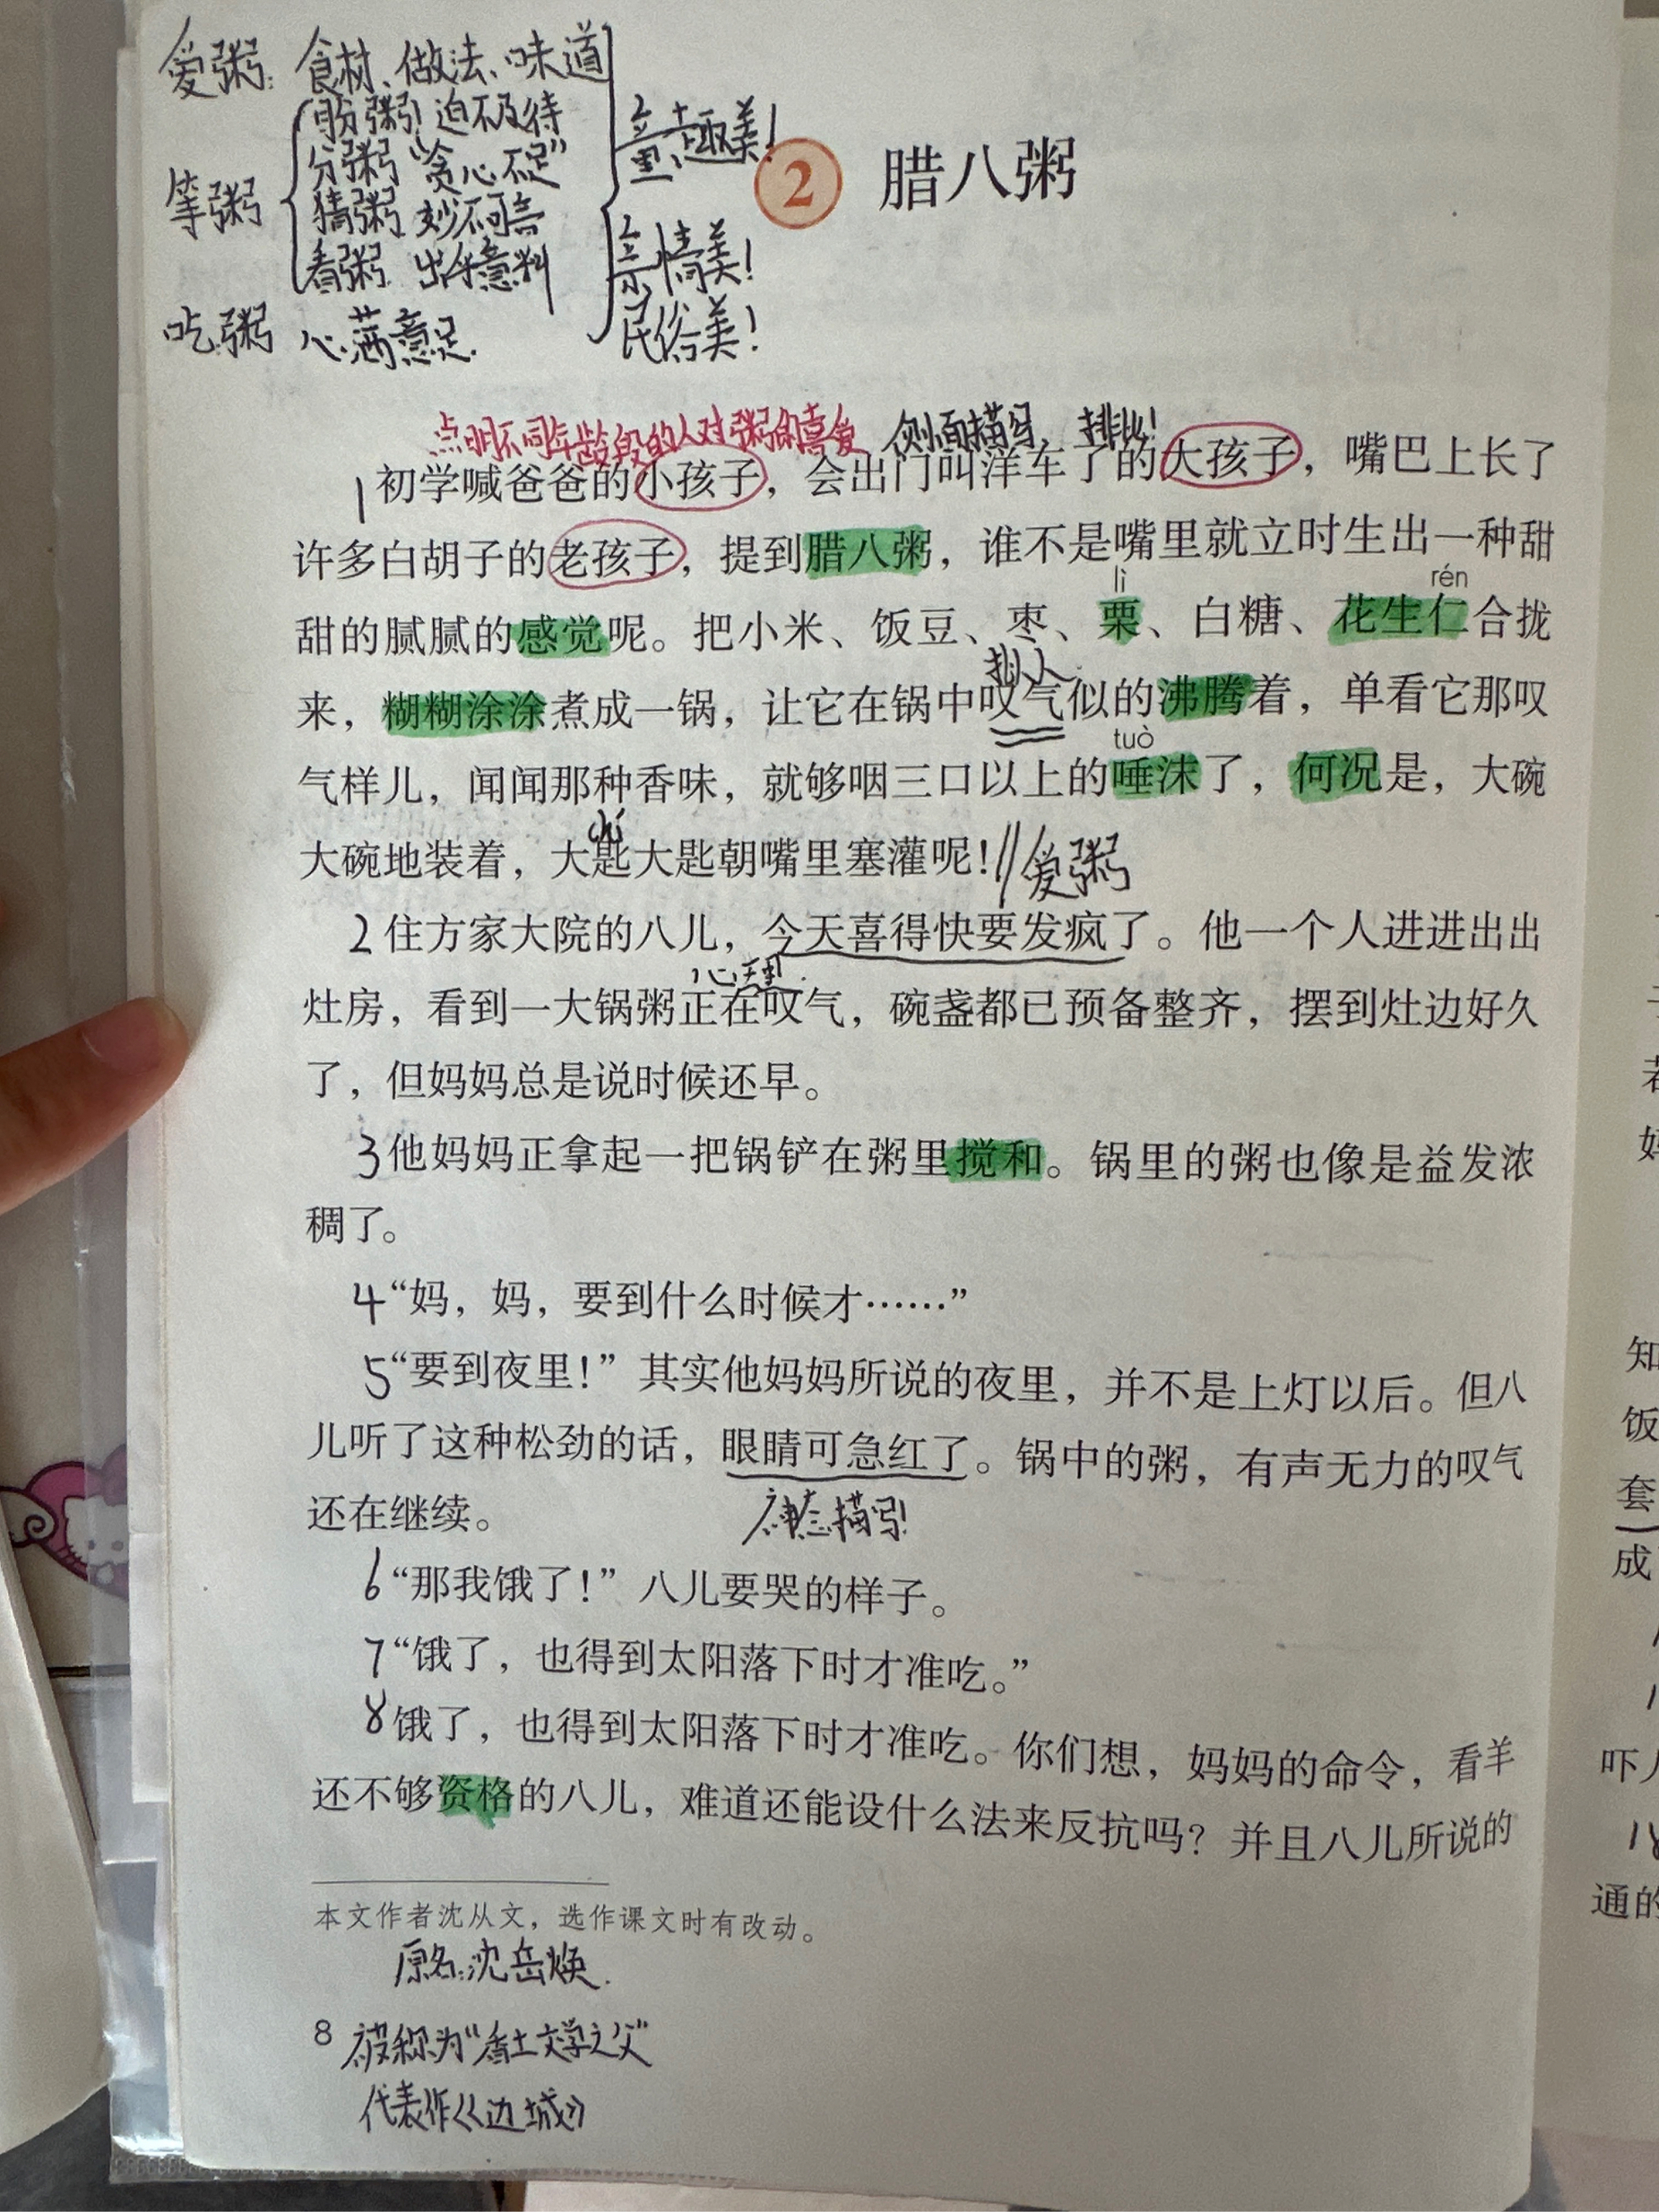 爱粥：食材、做法、味道
等粥
盼粥 迫不及待
分粥 “贪心不足”
猜粥 妙不可言
看粥 出乎意料
吃粥 心满意足.
童趣美！
亲情美！
民俗美！
2 腊八粥
点明不同年龄段的人对粥的喜爱 侧面描写、排比！
1 初学喊爸爸的小孩子，会出门叫洋车了的大孩子，嘴巴上长了
许多白胡子的老孩子，提到腊八粥，谁不是嘴里就立时生出一种甜
lì rén
甜的腻腻的感觉呢。把小米、饭豆、枣、栗、白糖、花生仁合拢
拟人
来，糊糊涂涂煮成一锅，让它在锅中叹气似的沸腾着，单看它那叹
tuò
气样儿，闻闻那种香味，就够咽三口以上的唾沫了，何况是，大碗
chí
大碗地装着，大匙大匙朝嘴里塞灌呢！// 爱粥
2 住方家大院的八儿，今天喜得快要发疯了。他一个人进进出出
心理
灶房，看到一大锅粥正在叹气，碗盏都已预备整齐，摆到灶边好久
了，但妈妈总是说时候还早。
3 他妈妈正拿起一把锅铲在粥里搅和。锅里的粥也像是益发浓
稠了。
4 “妈，妈，要到什么时候才……”
5 “要到夜里！”其实他妈妈所说的夜里，并不是上灯以后。但八
儿听了这种松劲的话，眼睛可急红了。锅中的粥，有声无力的叹气
还在继续。
神态描写！
6 “那我饿了！”八儿要哭的样子。
7 “饿了，也得到太阳落下时才准吃。”
8 饿了，也得到太阳落下时才准吃。你们想，妈妈的命令，看羊
还不够资格的八儿，难道还能设什么法来反抗吗？并且八儿所说的
本文作者沈从文，选作课文时有改动。
原名：沈岳焕.
8 被称为“乡土文学之父”
代表作《边城》
知
饭
套
成
吓
通的